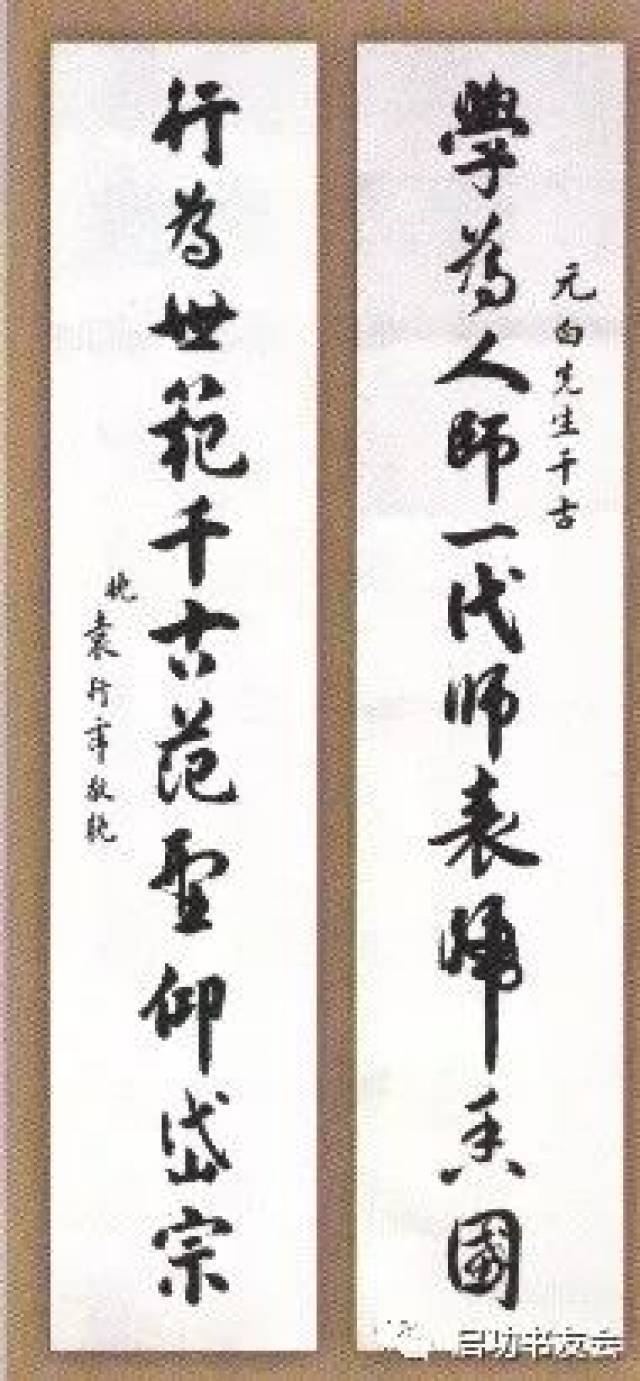 元白先生千古
學為人師一代师表歸香國
行為世範千古范型仰岱宗
晚袁行霈敬輓
启功书友会